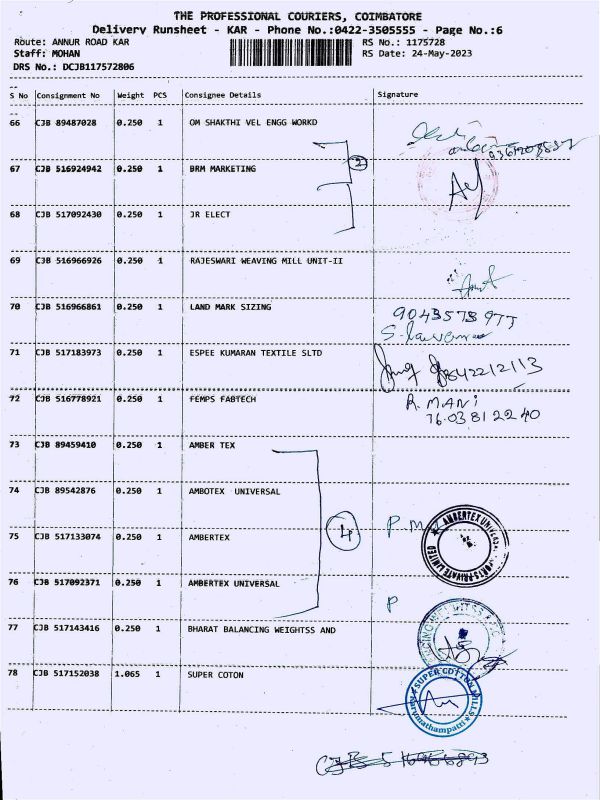 THE PROFESSIONAL COURIERS, COIMBATORE
Delivery Runsheet - KAR - Phone No.:0422-3505555 - Page No.:6
Route: ANNUR ROAD KAR RS No.: 1175728
Staff: MOHAN RS Date: 24-May-2023
DRS No.: DCJB117572806
S No Consignment No Weight PCS Consignee Details Signature
66 CJB 89487028 0.250 1 OM SHAKTHI VEL ENGG WORKD
67 CJB 516924942 0.250 1 BRM MARKETING 2
68 CJB 517092430 0.250 1 JR ELECT
69 CJB 516966926 0.250 1 RAJESWARI WEAVING MILL UNIT-II
70 CJB 516966861 0.250 1 LAND MARK SIZING
71 CJB 517183973 0.250 1 ESPEE KUMARAN TEXTILE SLTD
72 CJB 516778921 0.250 1 FEMPS FABTECH R. MANI
76.03 81 22 40
73 CJB 89459410 0.250 1 AMBER TEX
74 CJB 89542876 0.250 1 AMBOTEX UNIVERSAL
75 CJB 517133074 0.250 1 AMBERTEX 4
76 CJB 517092371 0.250 1 AMBERTEX UNIVERSAL P
77 CJB 517143416 0.250 1 BHARAT BALANCING WEIGHTSS AND
78 CJB 517152038 1.065 1 SUPER COTON
SUPER COTTON MILLS